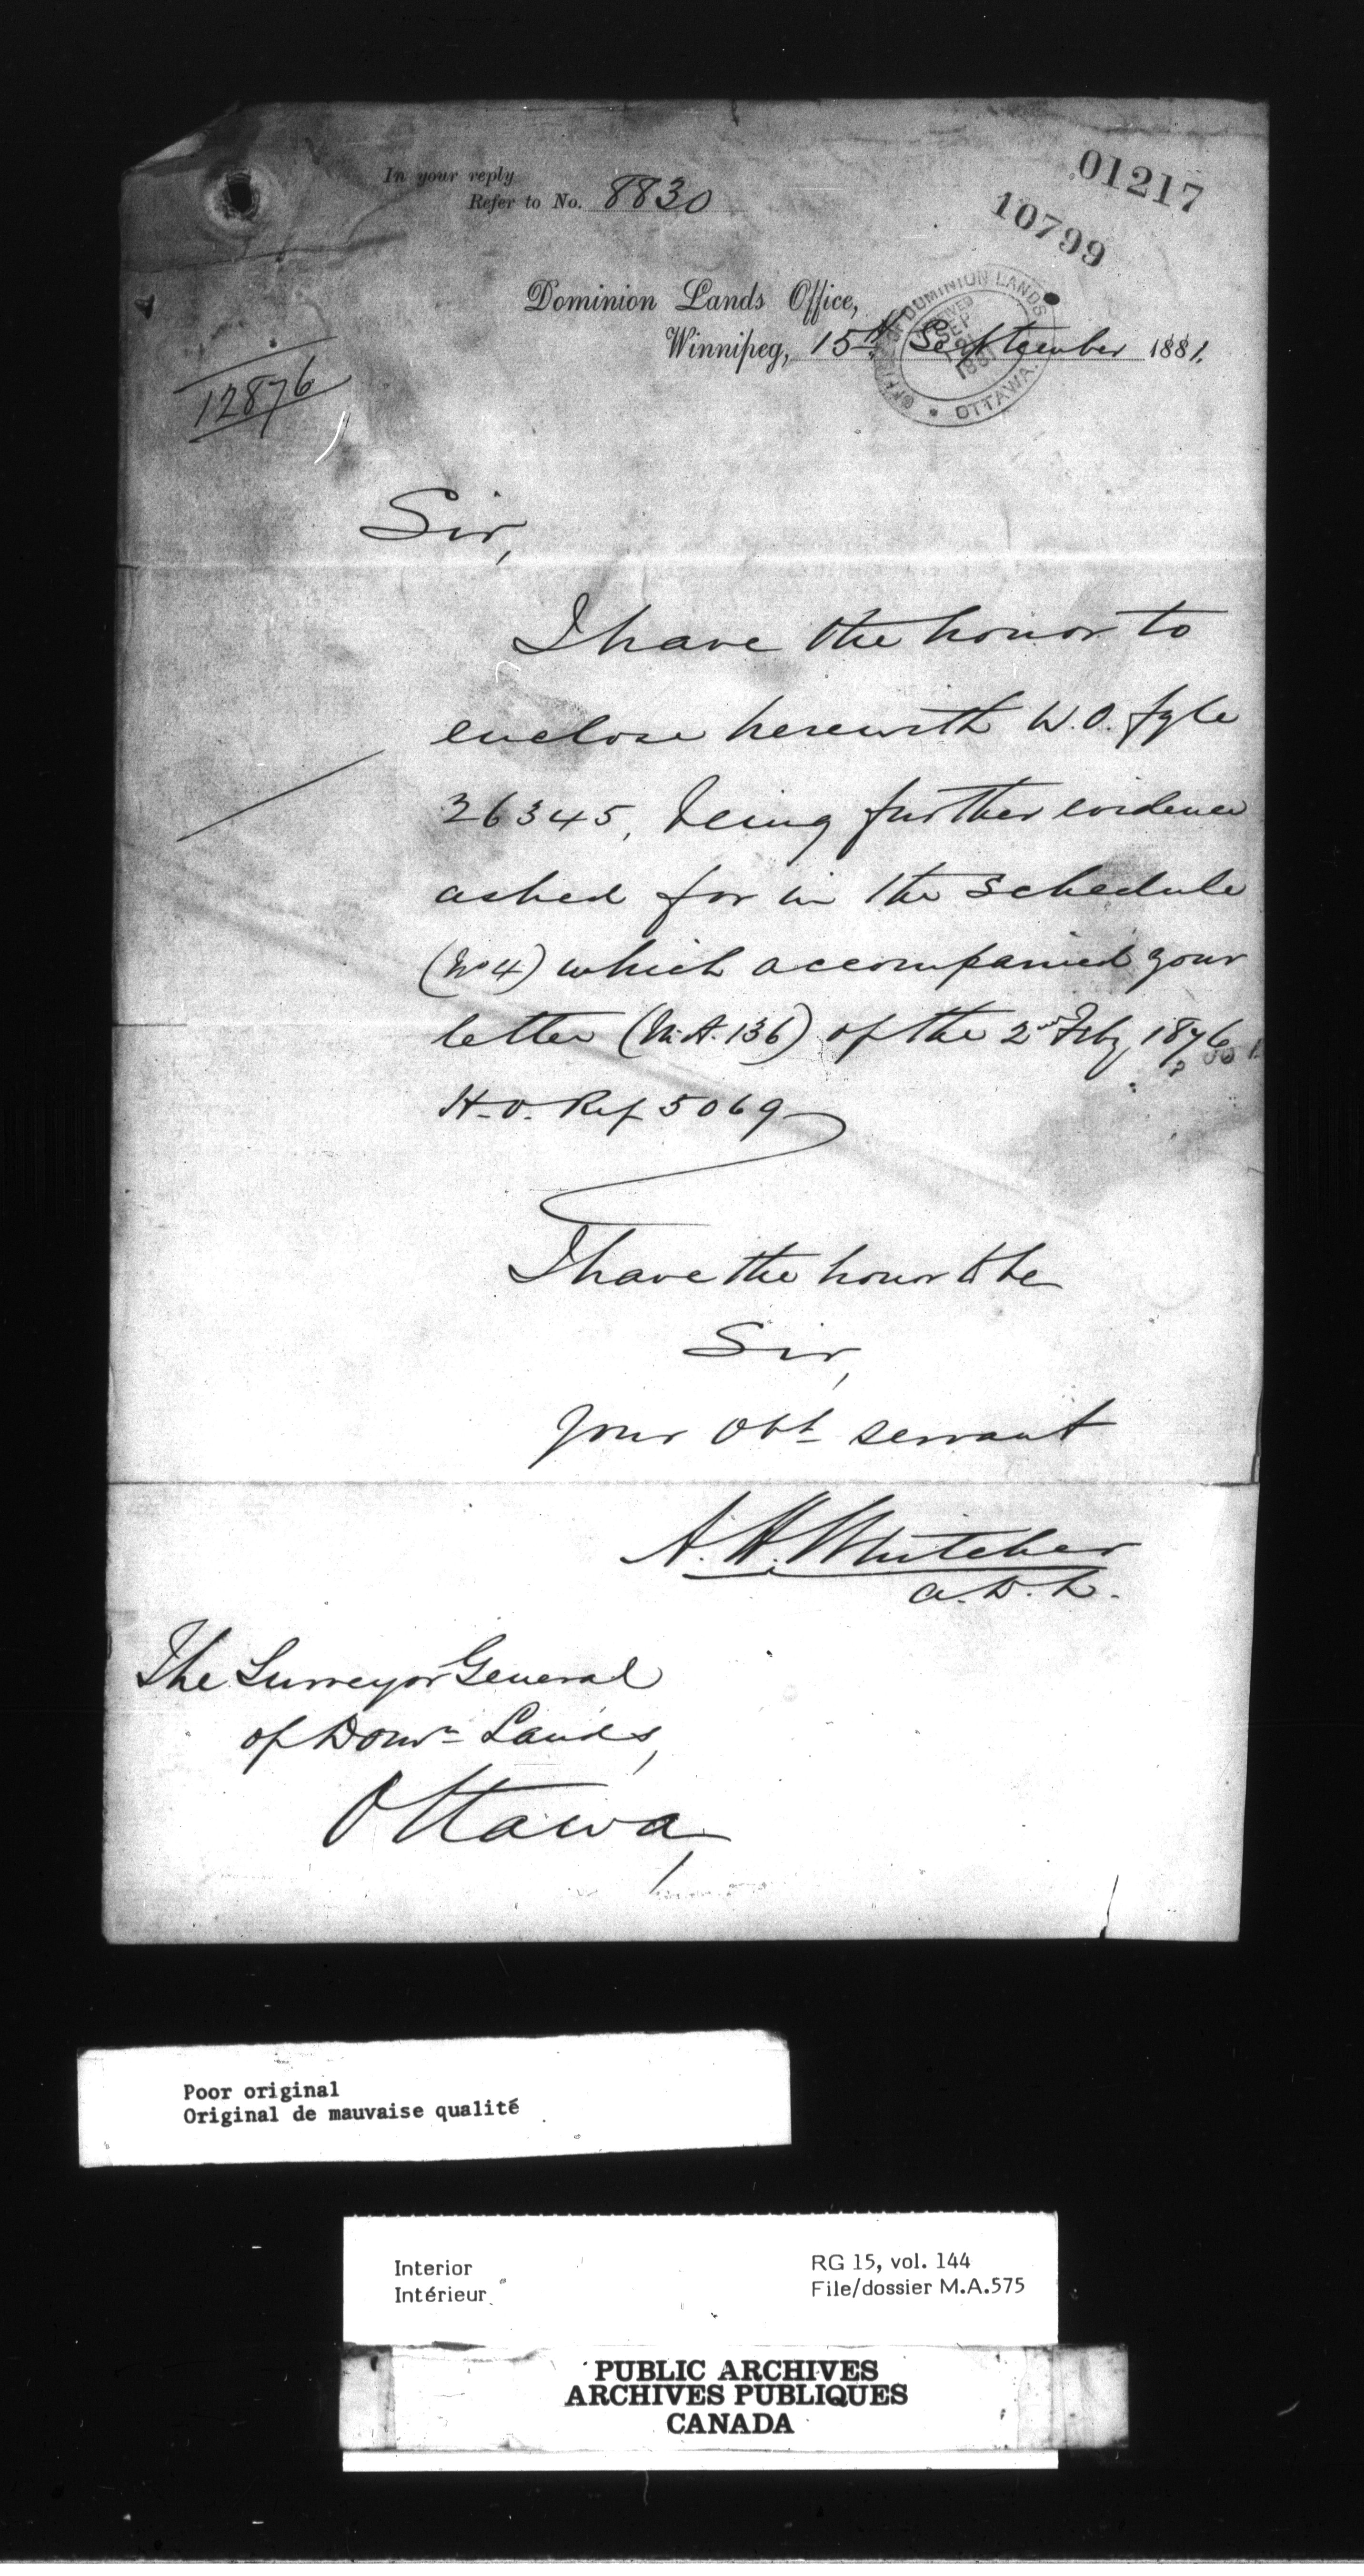 In your reply
Refer to No. 8830
01217
10799
Dominion Lands Office,
Winnipeg, 15th September 1881.
OFFICE OF DOMINION LANDS
RECEIVED
SEP
1881
OTTAWA.
12876
Sir,
I have the honor to
enclose herewith W.O. fyle
26345, being further evidence
asked for in the schedule
(No 4) which accompanied your
letter (M.A. 136) of the 2nd Feby 1876
H.O. Ref 5069
I have the honor to be
Sir,
Your Obt servant
A. H. Whitcher
A.D.L.
The Surveyor General
of Domn Lands,
Ottawa,
Poor original
Original de mauvaise qualité
Interior
Intérieur
RG 15, vol. 144
File/dossier M.A.575
PUBLIC ARCHIVES
ARCHIVES PUBLIQUES
CANADA